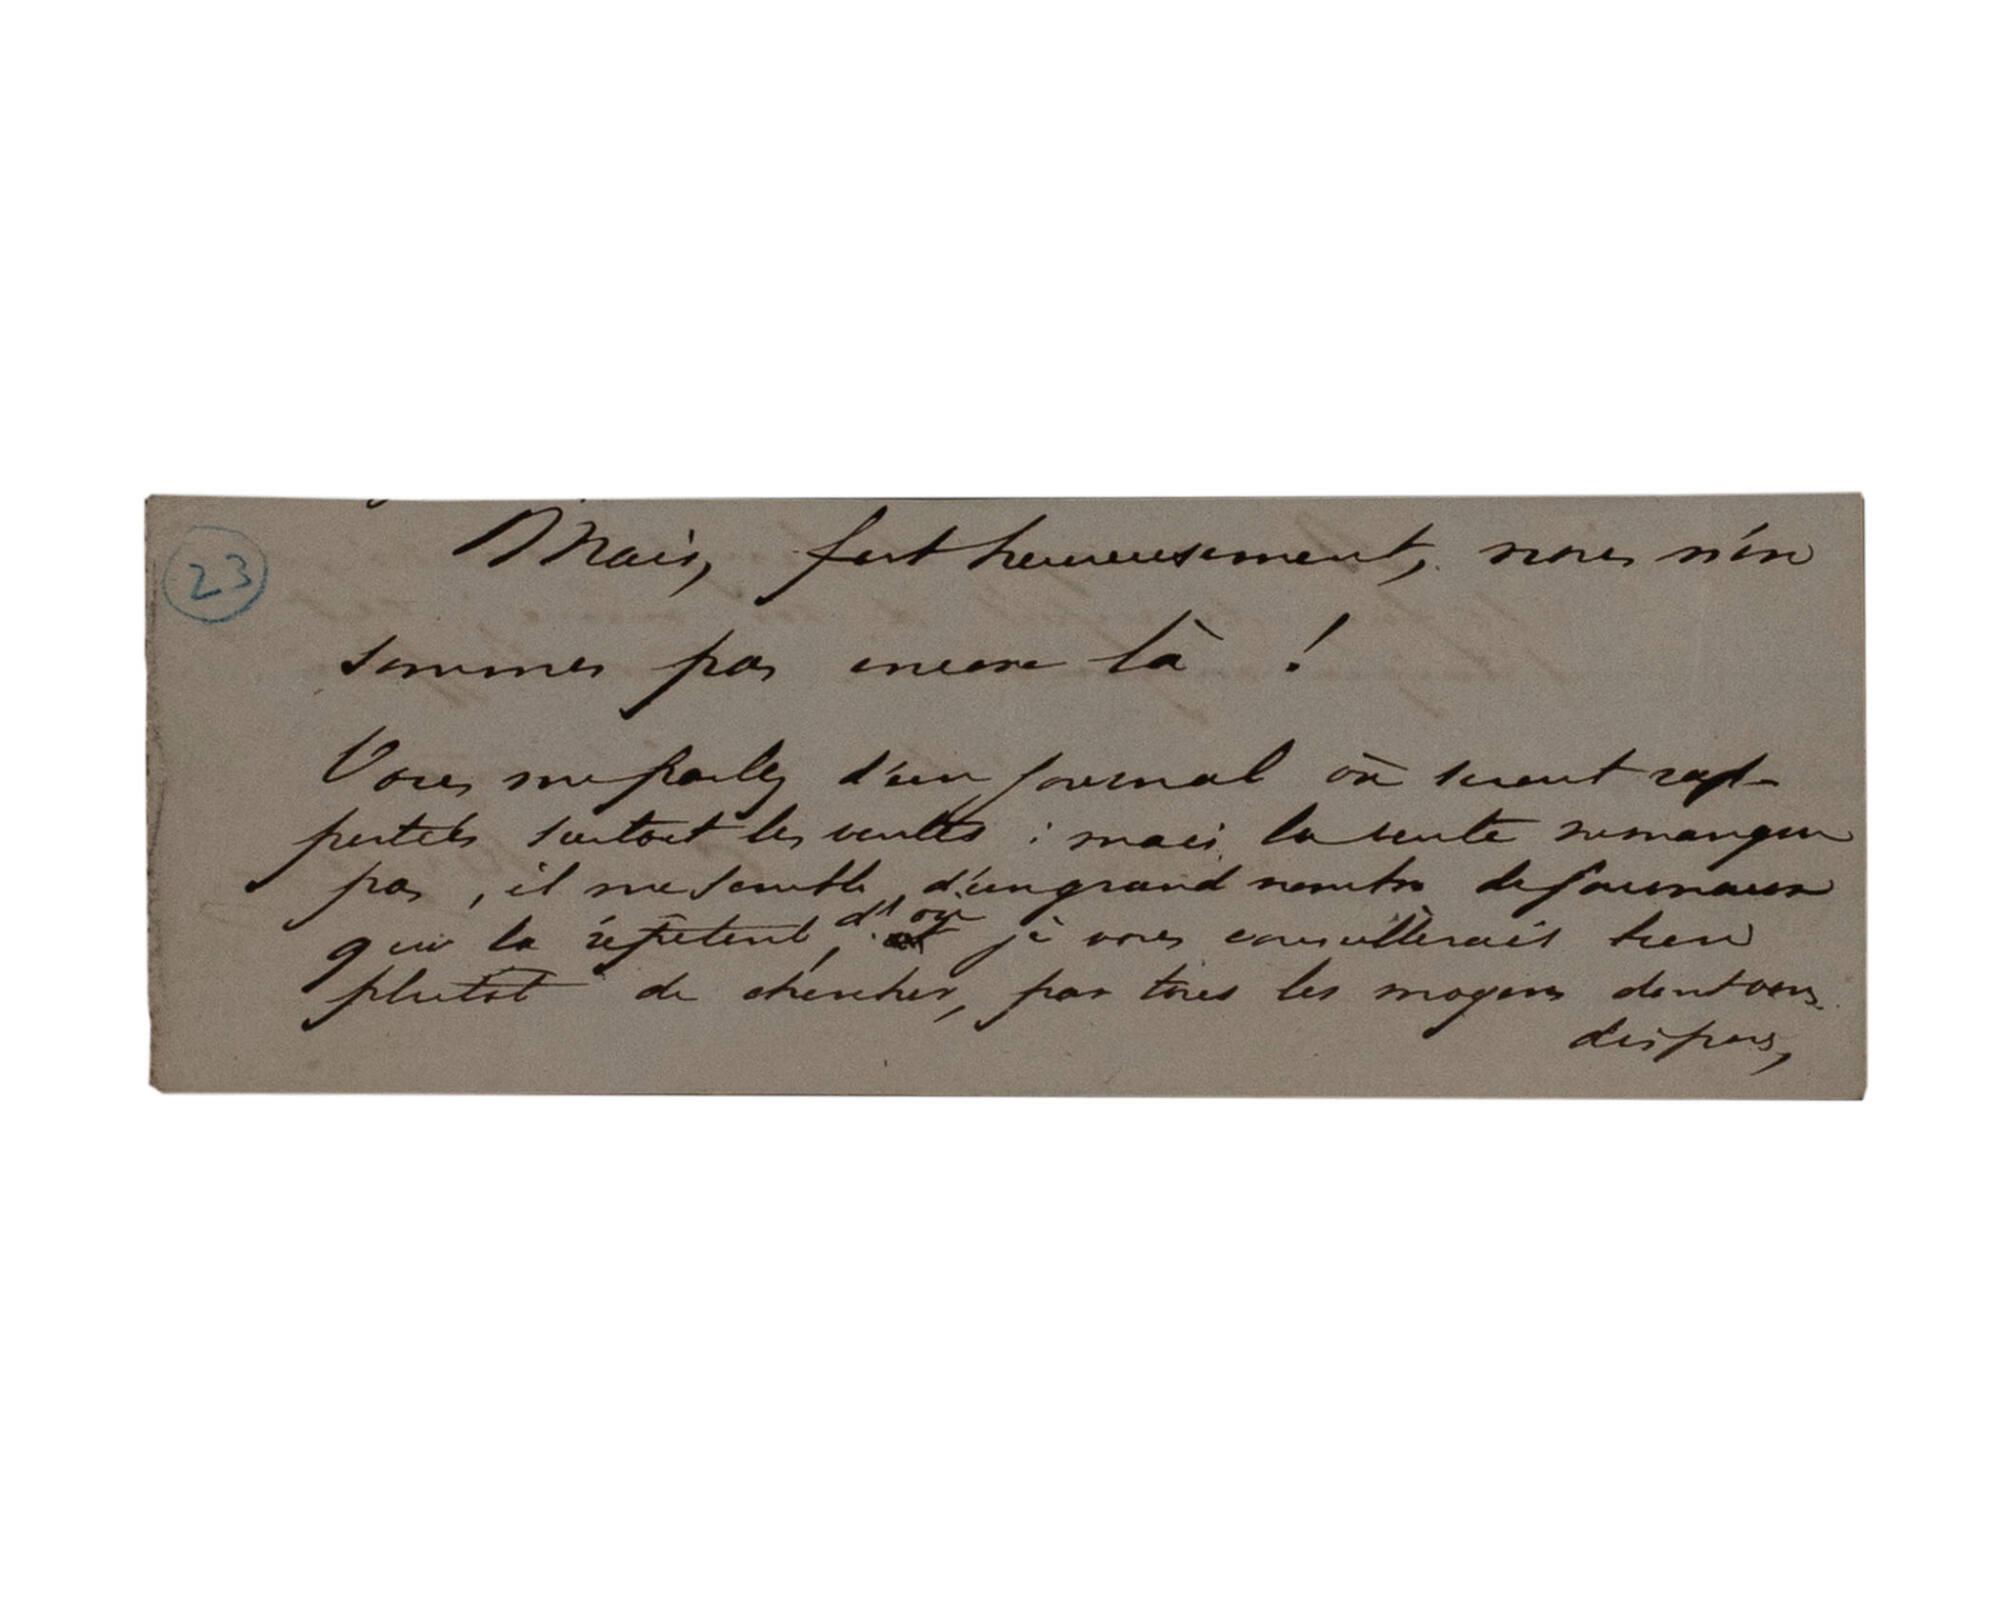 23
Mais, fort heureusement, nous n'en
sommes pas encore là !
Vous me parlez d'un journal où seront rap-
portées surtout les ventes : mais la vente ne manque
pas, il me semble, d'un grand nombre de journaux
qui la répètent, d'où je vous conseillerais bien
plutôt de chercher, par tous les moyens dont vous
disposez,